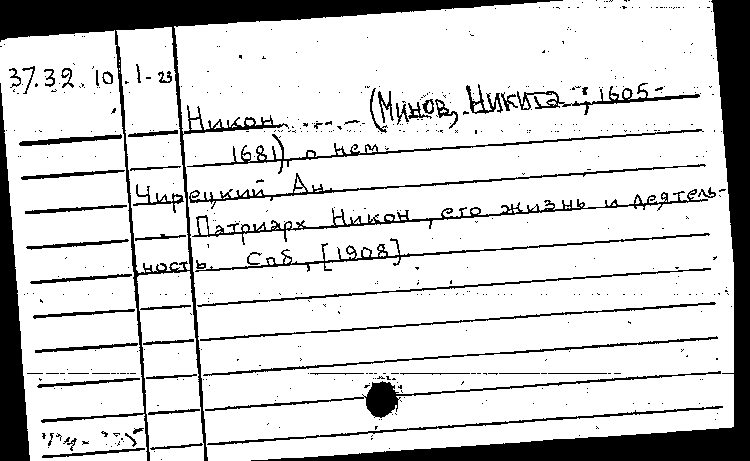 37.32.10.1-23
Никон ..... – (Минов, Никита .; 1605-
1681), о нем.
Чирецкий, Ан.
Патриарх Никон, его жизнь и деятель-
ность. Спб., [1908].